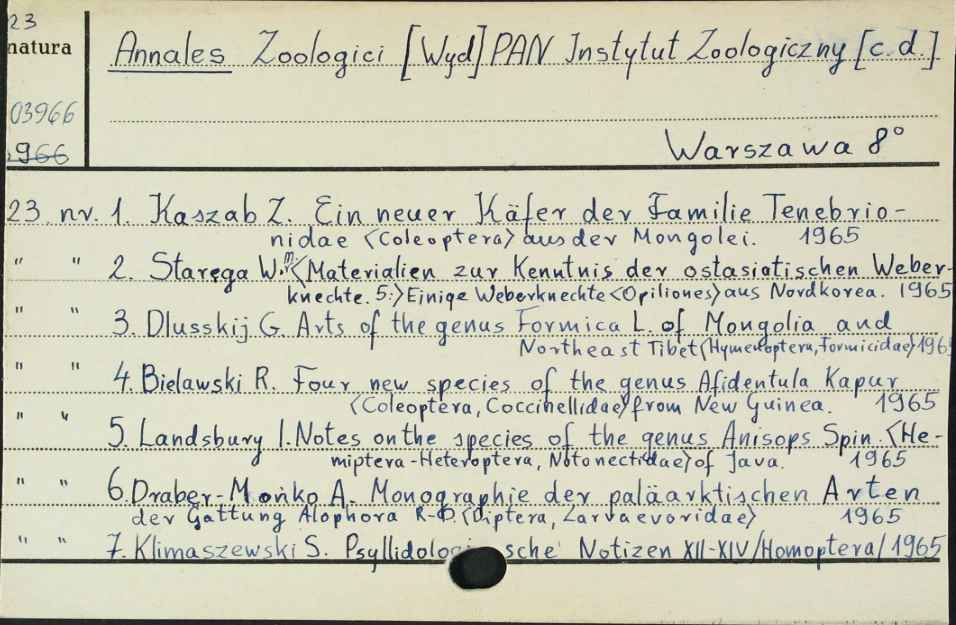 23
natura
Annales Zoologici [Wyd] PAN Instytut Zoologiczny [c.d.].
03966
966
Warszawa 8°
23 nr. 1. Kaszab Z. Ein neuer Käfer der Familie Tenebrio-
nidae <Coleoptera> aus der Mongolei. 1965
" " 2. Staręga W. <Materialien zur Kenntnis der ostasiatischen Weber-
knechte. 5:> Einige Weberknechte <Opiliones> aus Nordkorea. 1965
" " 3. Dlusskij G. Arts of the genus Formica L. of Mongolia and
Northeast Tibet <Hymenoptera, Formicidae> 196
" " 4. Bielawski R. Four new species of the genus Afidentula Kapur
<Coleoptera, Coccinellidae> from New Guinea. 1965
" " 5. Landsbury I. Notes on the species of the genus Anisops Spin. <He-
miptera-Heteroptera, Notonectidae> of Java. 1965
" " 6. Draber-Mońko A. Monographie der paläarktischen Arten
der Gattung Alophora R-D. <Diptera, Larvaevoridae> 1965
" " 7. Klimaszewski S. Psyllidologische Notizen XII-XIV /Homoptera/ 1965